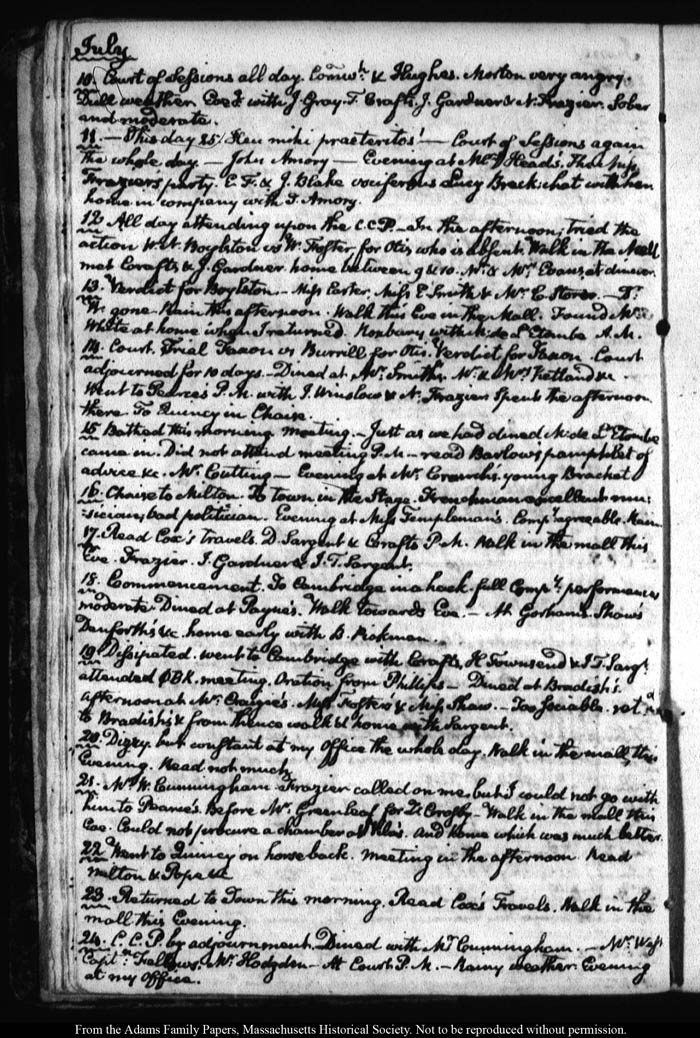 July
10. Court of Sessions all day. Comwh. & Hughes. Morton very angry.
Dull weather Eveg. with J. Gray. T. Crafts. J. Gardner & N. Frazier. Sober
and moderate.
11. — This day 25. Heu mihi praeteritos! — Court of Sessions again
the whole day — John Amory — Evening at Mrs. Head's. Miss
Frazier's party. E.F. & J. Blake vociferous Lucy Breck: chat with her
home in company with J. Amory.
12. All day attending upon the C.C.P. — In the afternoon, tried the
action W.N. Boylston vs W. Foster for Otis who is absent. Walk in the Mall
met Crafts & J. Gardner. home between 9 & 10. Mr. & Mrs. Evans, at dinner.
13. Verdict for Boylston — Miss Carter. Miss E. Smith & Mr. C. Storer. — Dr.
W. gone. Rain this afternoon. Walk this Eve in the Mall. Found Mr.
White at home when I returned. Roxbury with M: de L'Etombe A.M.
14. Court. Trial Faxon vs Burrill for Otis. Verdict for Faxon. Court
adjourned for 10 days. — Dined at Mr. Smith's. Mr. & Mrs. &c.
Went to Pearce's P.M. with J. Winslow & N. Frazier. Spent the afternoon
there. To Quincy in Chaise.
15 Bathed this morning. Meeting. — Just as we had dined M: de L'Etombe
came in. Did not attend meeting P.M. — read Barlow's pamphlet of
advice &c. Mr. Cutting. — Evening at Mr. Cranch's. young Bracket
16. Chaise to Milton. To town in the Stage. Frenchman excellent mu:
sician, bad politician. Evening at Miss Templeman's. Compy. agreeable. Rain
17. Read Cox's travels. D. Sargent & Crafts P.M. Walk in the mall this
Eve. Frazier. J. Gardner & J.T. Sargent.
18. Commencement. To Cambridge in a hack. full Compy. performances
moderate. Dined at Payne's. Walk towards Eve. — At Gorham's Shaw's
Danforth's &c. home early with B. Pickman.
19. Dissipated. went to Cambridge with Crafts, H. Townsend & J.T. Sargt.
attended ΦBK. meeting. Oration from Phillips — Dined at Bradish's.
afternoon at Mr. Craigie's. Miss Fosters & Miss Shaw. — Too sociable. retd.
to Bradish's & from thence walk'd home with Sargent.
20. Dizzy. but constant at my Office the whole day. Walk in the mall, this
Evening. Read not much.
21. Mrs. W. Cunningham. Frazier called on me. but I could not go with
him to Pearce's. Before Mr. Greenleaf for Crosby — Walk in the mall this
Eve. Could not procure a chamber at And home which was much better.
22. Went to Quincy on horseback. Meeting in the afternoon. Read
Milton & Pope &c
23. Returned to Town this morning. Read Cox's Travels. Walk in the
mall this Evening.
24. C.C.P. by adjournment. Dined with Mr. Cunningham. — Mr. West
Captn. Fellows. Mr. Hodgdon — At Court P.M. — Rainy weather. Evening
at my Office.
From the Adams Family Papers, Massachusetts Historical Society. Not to be reproduced without permission.